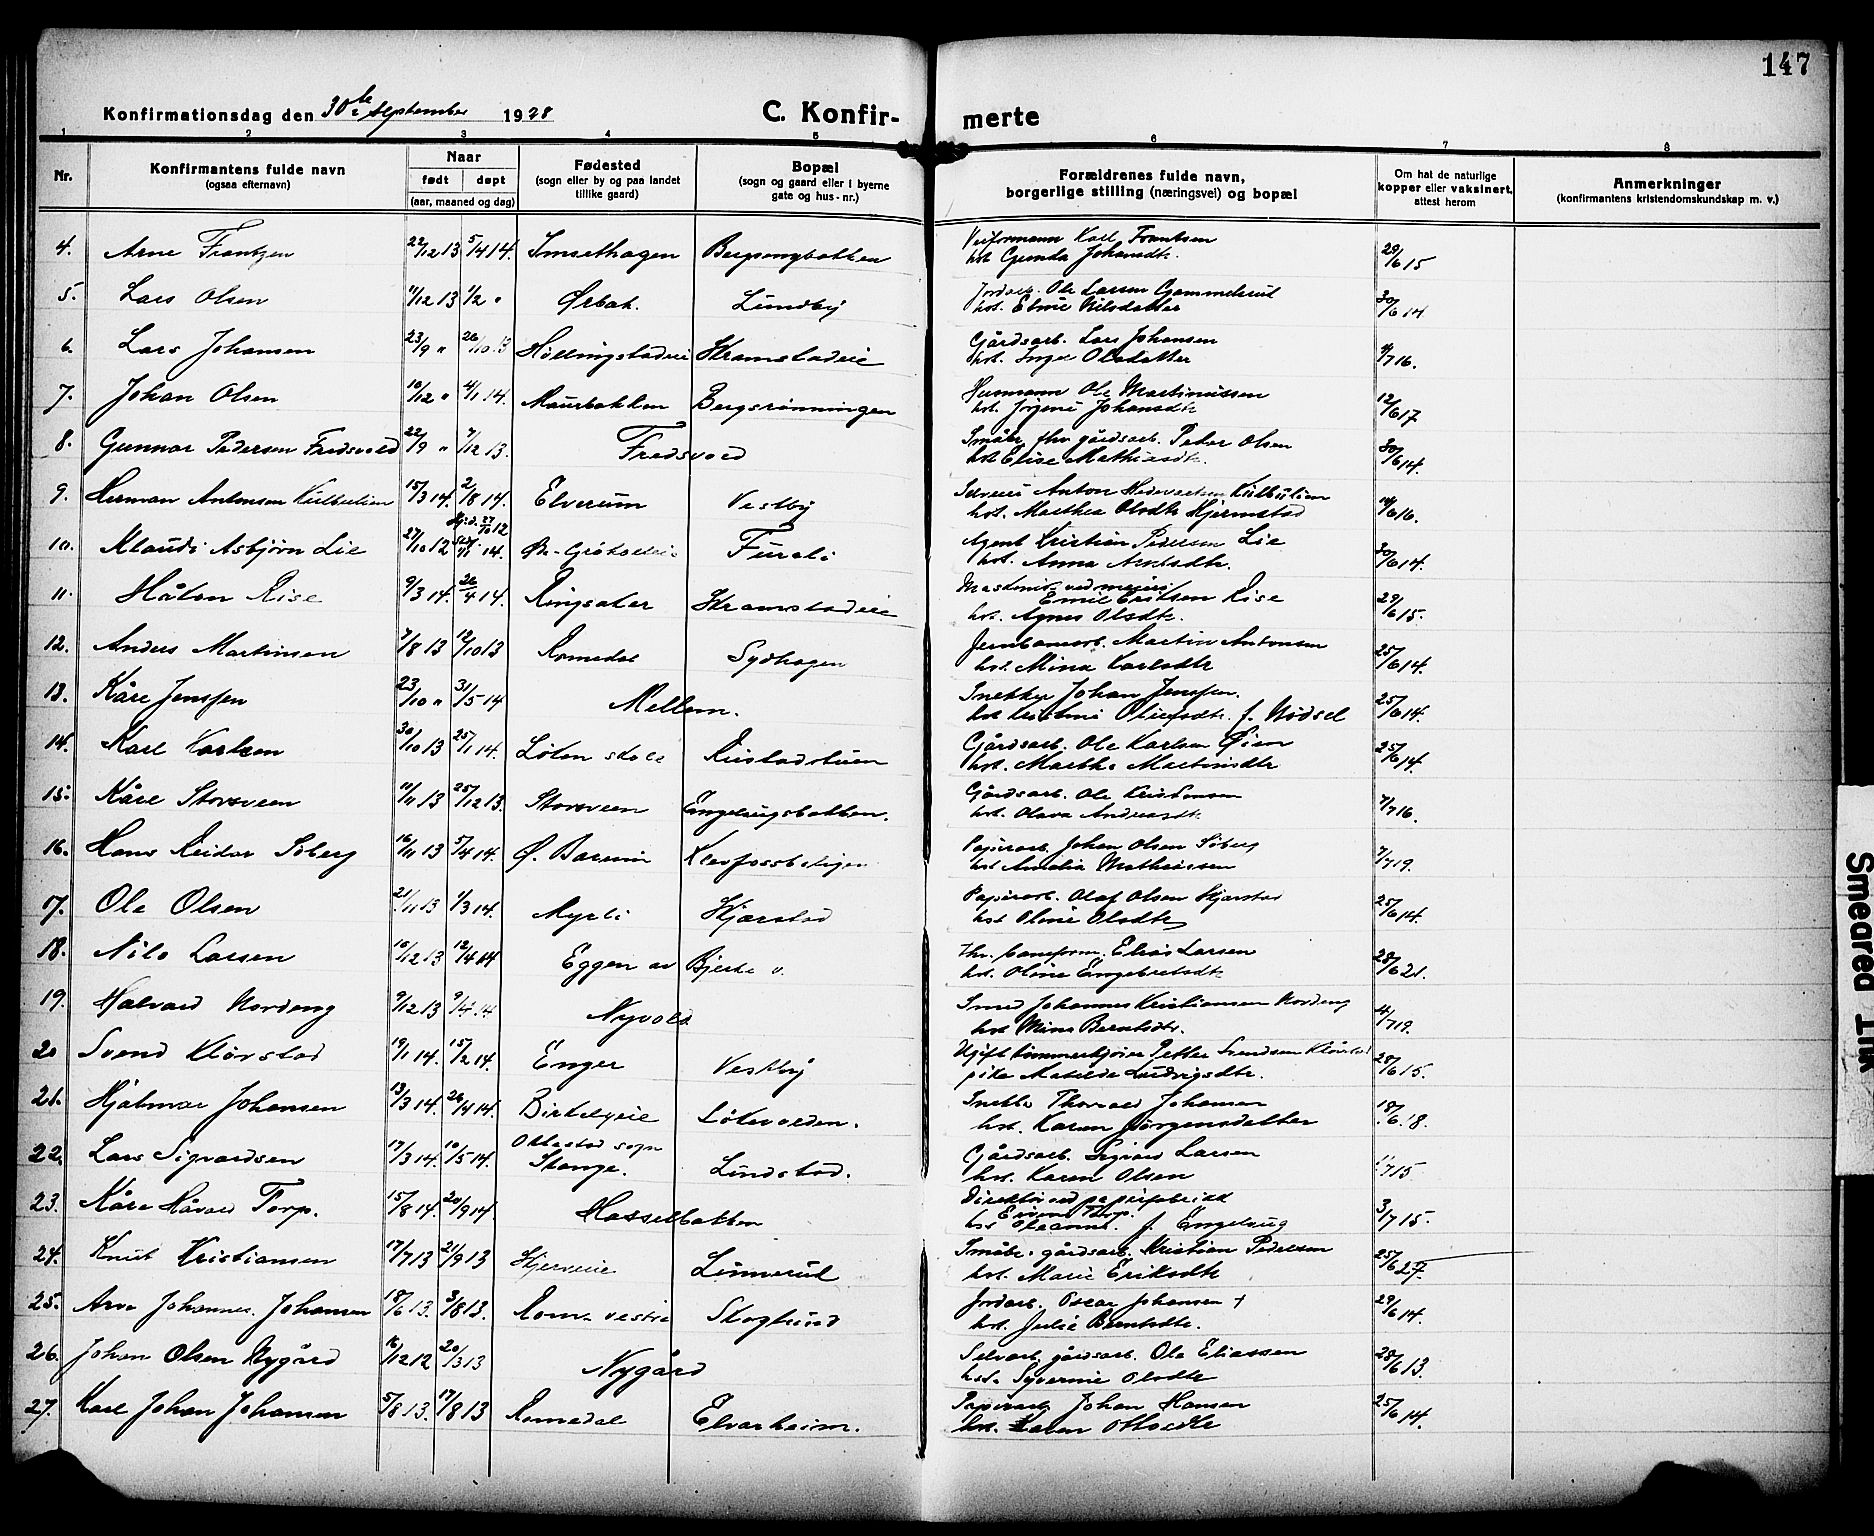 147
Konfirmationsdag den 30te September 1928
C. Konfirmerte
1 2 3 4 5 6 7 8
Nr.
Konfirmantens fulde navn
(ogsaa efternavn)
Naar
født døpt
(aar, maaned og dag)
Fødested
(sogn eller by og paa landet
tillike gaard)
Bopæl
(sogn og gaard eller i byerne
gate og hus-nr.)
Forældrenes fulde navn,
borgerlige stilling (næringsvei) og bopæl
Om hat de naturlige
kopper eller vaksinert,
attest herom
Anmerkninger
(konfirmantens kristendomskundskap m. v.)
4. Arne Frantzen 22/12 13 5/4 14. Imsethagen Bergsengbakken Veiformann Karl Frantsen 29/6 15
hst. Gunda Johansdtr.
5. Lars Olsen 11/12 13 1/2 " Ørbak. Lundby Jordarb. Ole Larsen Gammelsrud 30/6 14
hst. Eline Nilsdatter
6. Lars Johansen 23/9 " 26/10 13 Høllingstadeie Kramstadeie Gårdsarb. Lars Johansen /7 16.
hst. Inger Olsdatter
7. Johan Olsen 10/12 " 4/1 14. Maurbakken Bergsrønningen Husmann Ole Martinussen 12/6 17
hst. Jørgine Johansdtr
8. Gunnar Pedersen Fredsvold 22/9 " 7/12 13. Fredsvold Småbr. fhv gårdsarb. Peder Olsen 30/6 14.
hst. Elise Mathiasdtr.
9. Herman Antonsen Kulbulien 15/3 14. 2/8 14. Elverum Vestby Selveier Anton Kulbulien /6 16.
hst. Marthea Olsdtr Hjermstad
10. Klaudi Asbjørn Lie 27/10 12 Hjd. 27/10 12 14. Furuli Agent Kristian Pedersen Lie 30/6 14.
hst. Anna Arntsdtr.
11. Håkon Rise 9/3 14. 26/4 14. Ringsaker Kramstadeie ved meieri 29/6 15.
Emil Eriksen Rise
hst. Agnes Olsdtr.
12. Anders Martinsen 7/8 13 12/10 13 Romedal Sydhagen Jernbanearb. Martin Antonsen 25/6 14.
hst. Mina Karlsdtr
13. Kåre Jenssen 23/10 " 31/5 14 Mellem. Snekker Johan Jenssen. 25/6 14.
hst Kristine Olsdtr. f. Nødsel
14. Karl Karlsen 30/10 13 25/1 14. Løten skole Ristadstuen Gårdsarb. Ole Karlsen Øien 25/6 14.
hst. Marthe Martinsdtr
15. Kåre Storsveen 11/11 13 25/12 13. Storsveen Engelaugsbakken. Gårdsarb. Ole Kristensen 7/7 16.
hst. Olava Andreasdtr.
16. Hans Reidar Søberg 16/11 13 5/4 14. Ø. Barum Klevfossboligen Papirarb. Johan Olsen Søberg 7/7 19.
hst Amalia Mathiassen
17. Ole Olsen 21/11 13 1/3 14. Myrli Kjærstad Papirarb. Olaf Olsen Kjærstad 25/6 14.
hst Oline Olsdtr
18. Nils Larsen 10/12 13 12/4 14 Eggen av Bjerke v. Fhv. baneform. Elias Larsen 28/6 21.
hst. Oline Engebretsdtr
19. Halvard Nordeng 9/12 13 9/4 14 Nyvold Smed Johannes Kristiansen Nordeng 4/7 19.
hst Mina Berntsdtr.
20 Svend Kløvstad 19/1 14. 15/2 14. Enger Vestby Ugift tømmerkjører Petter Svendsen Kløvstad 28/6 15.
pike Matilde Ludvigsdtr.
21. Hjalmar Johansen 13/3 14. 26/4 14. Birkelyeie Løkevolden. Snekker Thorvald Johansen 18/6. 18.
hst. Karen Jørgensdatter
22. Lars Sigvardsen 17/3 14. 10/5 14. Ottestad sogn Stange. Lundstad. Gårdsarb. Sigvard Larsen /7 15
hst. Karen Olsen
23. Kåre Håvard Torp. 15/8 14. 20/9 14. Hasselbakken Direktør ved papirfabrikk 3/7 15.
Torp.
hst f. Engelaug
24. Knut Kristiansen 17/7 13 21/9 13 Hjerveie Linnerud Småbr. gårdsarb. Kristian Pedersen 25/6 27.
hst. Marie Eriksdtr
25. Arve Johannes Johansen 18/6 13. 3/8 13. Skoglund Jordarb. Oscar Johansen + 29/6 14.
hst. Julie Berntsdtr.
26. Johan Olsen Nygård 16/12 12 20/3 13 Nygård Selvarb. gårdsarb. Ole Eliassen 28/6 13.
hst. Syverine Olsdtr
27. Karl Johan Johansen 5/8 13. 17/8 13 Romedal Elvarheim. Papirarb. Johan Hansen 25/6 14.
hst. Karen Ottosdtr
Smeared Ink